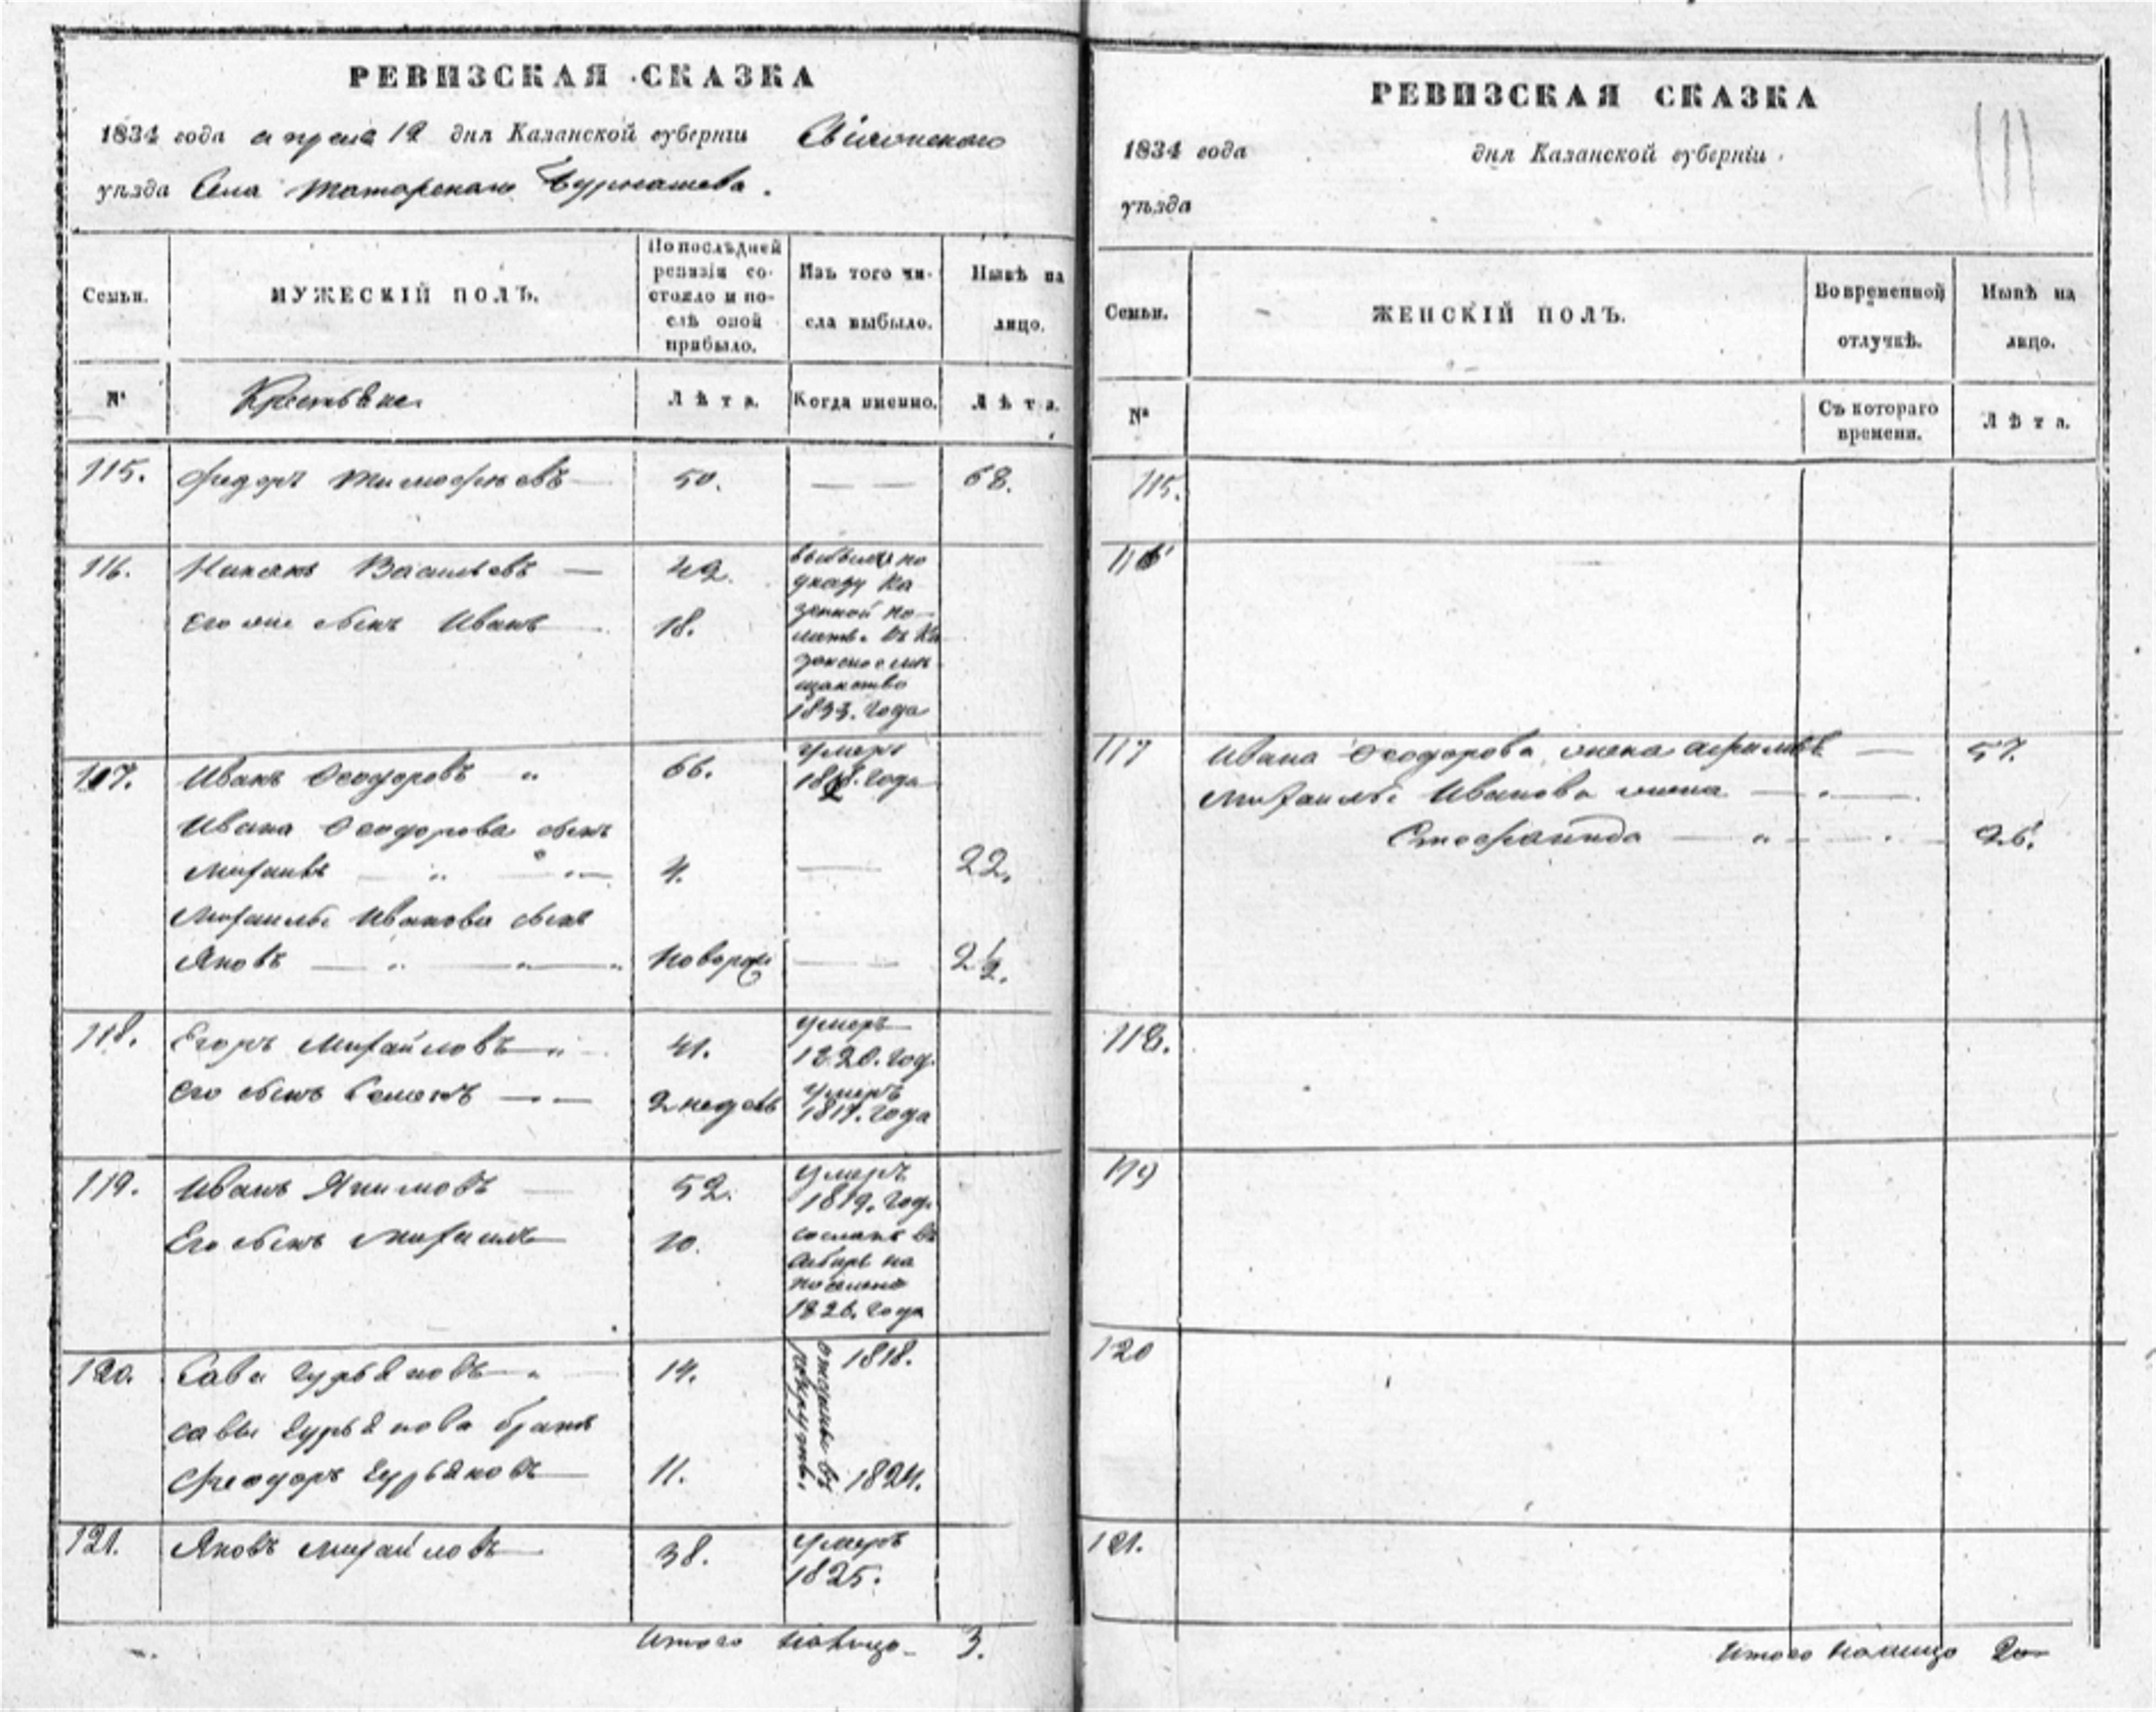 РЕВИЗСКАЯ СКАЗКА
1834 года апреля 12 дня Казанской губерніи Свіяжскаго
уѣзда Села Татарскаго Бурнашева.
Семьи.
МУЖЕСКІЙ ПОЛЪ.
По послѣдней
ревизіи со-
стояло и по-
слѣ оной
прибыло.
Изъ того чи-
сла выбыло.
Нынѣ на
лицо.
№
Крестьяне
Лѣта.
Когда именно.
Лѣта.
115. Федоръ Тимофѣевъ 50. — — 68.
116. Васильевъ — 42.
Его же сынъ Иванъ 18.
выбыли по
указу Ка
зенной па-
латы въ Ка
занское мѣ
щанство
1833. года
117. Иванъ Ѳеодоровъ " 66. умеръ
года
Ивана Ѳеодорова сынъ
Михаилъ — " — " — 4. — 22.
Михаилы Иванова сынъ
Яковъ — " — " — " новорож — — 2½.
118. Егоръ Михайловъ — " 41. умеръ
1820. год.
Его сынъ Семенъ — 2 недель умеръ
года
119. Иванъ Якимовъ 52. умеръ
1819. год.
Его сынъ Михаилъ 10. сосланъ въ
Сибирь на
поселение
1826. года
120. Сава Гурьяновъ — " 14. 1818.
Савы Гурьянова братъ
Феодоръ Гурьяновъ — 11. 1824.
отданы въ
рекруты.
121. Яковъ Михайловъ — 38. умеръ
1825.
Итого налицо — 3.
РЕВИЗСКАЯ СКАЗКА
1834 года дня Казанской губерніи
уѣзда
111
Семьи.
ЖЕНСКІЙ ПОЛЪ.
Во временной
отлучкѣ.
Нынѣ на
лицо.
№
Съ котораго
времени.
Лѣта.
115.
116
117 Ивана Ѳеодорова жена — 57.
Михаилы Иванова жена — " —
Стефанида — " — 26.
118.
119
120
121.
Итого налицо 2